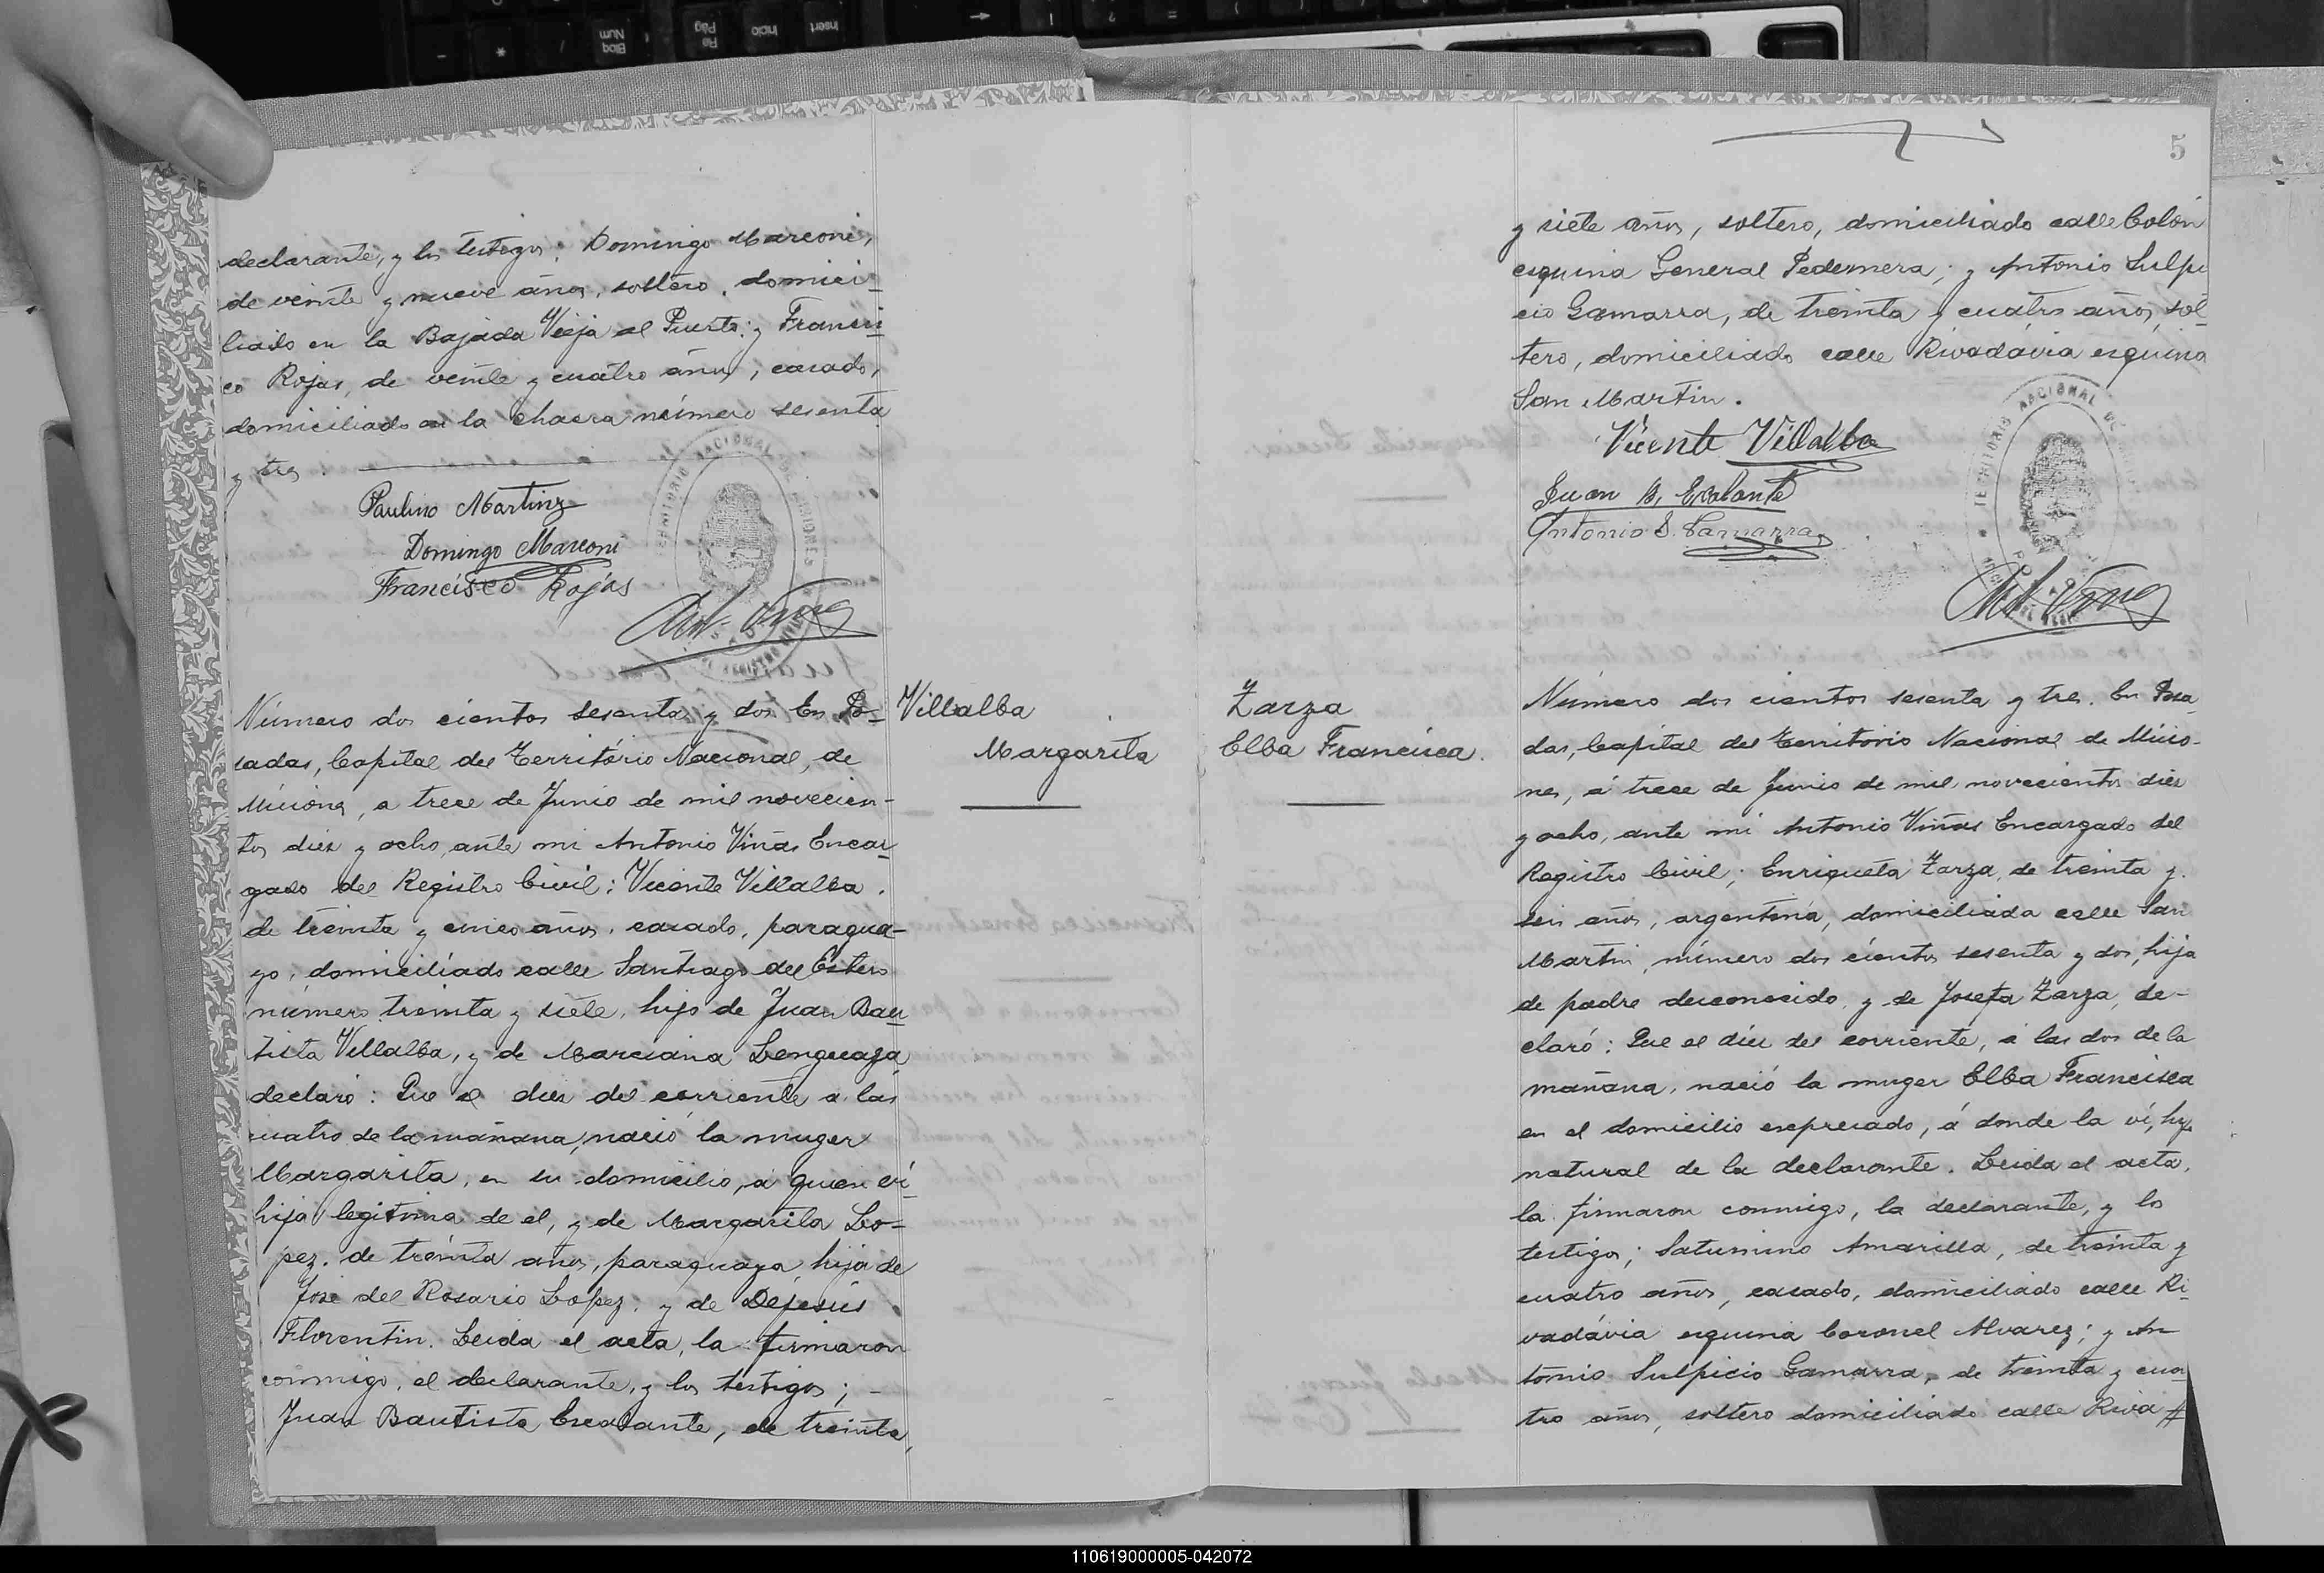 declarante, y los testigos: Domingo Marconi,
de veinte y nueve años, soltero, domici-
liado en la Bajada Vieja al Puerto; y Francis-
co Rojas, de veinte y cuatro años, casado,
domiciliado en la chacra número sesenta
y tres.
Paulino Martinz
Domingo Marconi
Francisco Rojas
Número dos cientos sesenta y dos En Po-
sadas, Capital del Território Nacional, de
Misiones, a trece de Junio de mil novecien-
tos diez y ocho, ante mi Antonio Viñas Encar-
gado del Registro Civil: Vicente Villalba.
de treinta y cinco años, casado, paragua-
yo, domiciliado calle Santiago del Estero
número treinta y siete, hijo de Juan Bau-
tista Villalba, y de Marciana Lenguaza
declaró: Que el diez del corriente a las
cuatro de la mañana, nació la muger
Margarita, en su domicilio, a quien ví
hija legitima de el, y de Margarita Lo-
pez, de treinta años, paraguaya, hija de
José del Rosario Lopez; y de Dejesús
Florentin. Leida el acta, la firmaron
conmigo, el declarante, y los testigos; -
Juan Bautista Escalante, de treinta
Villalba
Margarita
5
y siete años, soltero, domiciliado calle Colón
esquina General Pedernera; y Antonio Sulpi
cio Gamarra, de treinta y cuatro años, sol-
tero, domiciliado calle Rivadávia esquina
San Martin.
Vicente Villalba
Juan B. Escalante
Antonio S. Gamarra
Zarza
Elba Francisca.
Número dos cientos sesenta y tres. En Posa
das, Capital del Territorio Nacional de Misio-
nes, á trece de Junio de mil novecientos diez
y ocho, ante mi Antonio Viñas Encargado del
Registro Civil; Enriqueta Zarza, de treinta y
seis años, argentina, domiciliada calle San
Martin, número dos cientos sesenta y dos, hija
de padre desconocido, y de Josefa Zarza, de-
claró: Que el diez del corriente, a las dos de la
mañana, nació la muger Elba Francisca
en el domicilio expresado, á donde la ví, hija
natural de la declarante. Leida el acta,
la firmaron conmigo, la declarante, y los
testigos; Saturnino Amarilla, de treinta y
cuatro años, casado, domiciliado calle Ri-
vadávia esquina Coronel Alvarez; y An
tonio Sulpicio Gamarra, de treinta y cua-
tro años, soltero domiciliado calle Riva #
110619000005-042072